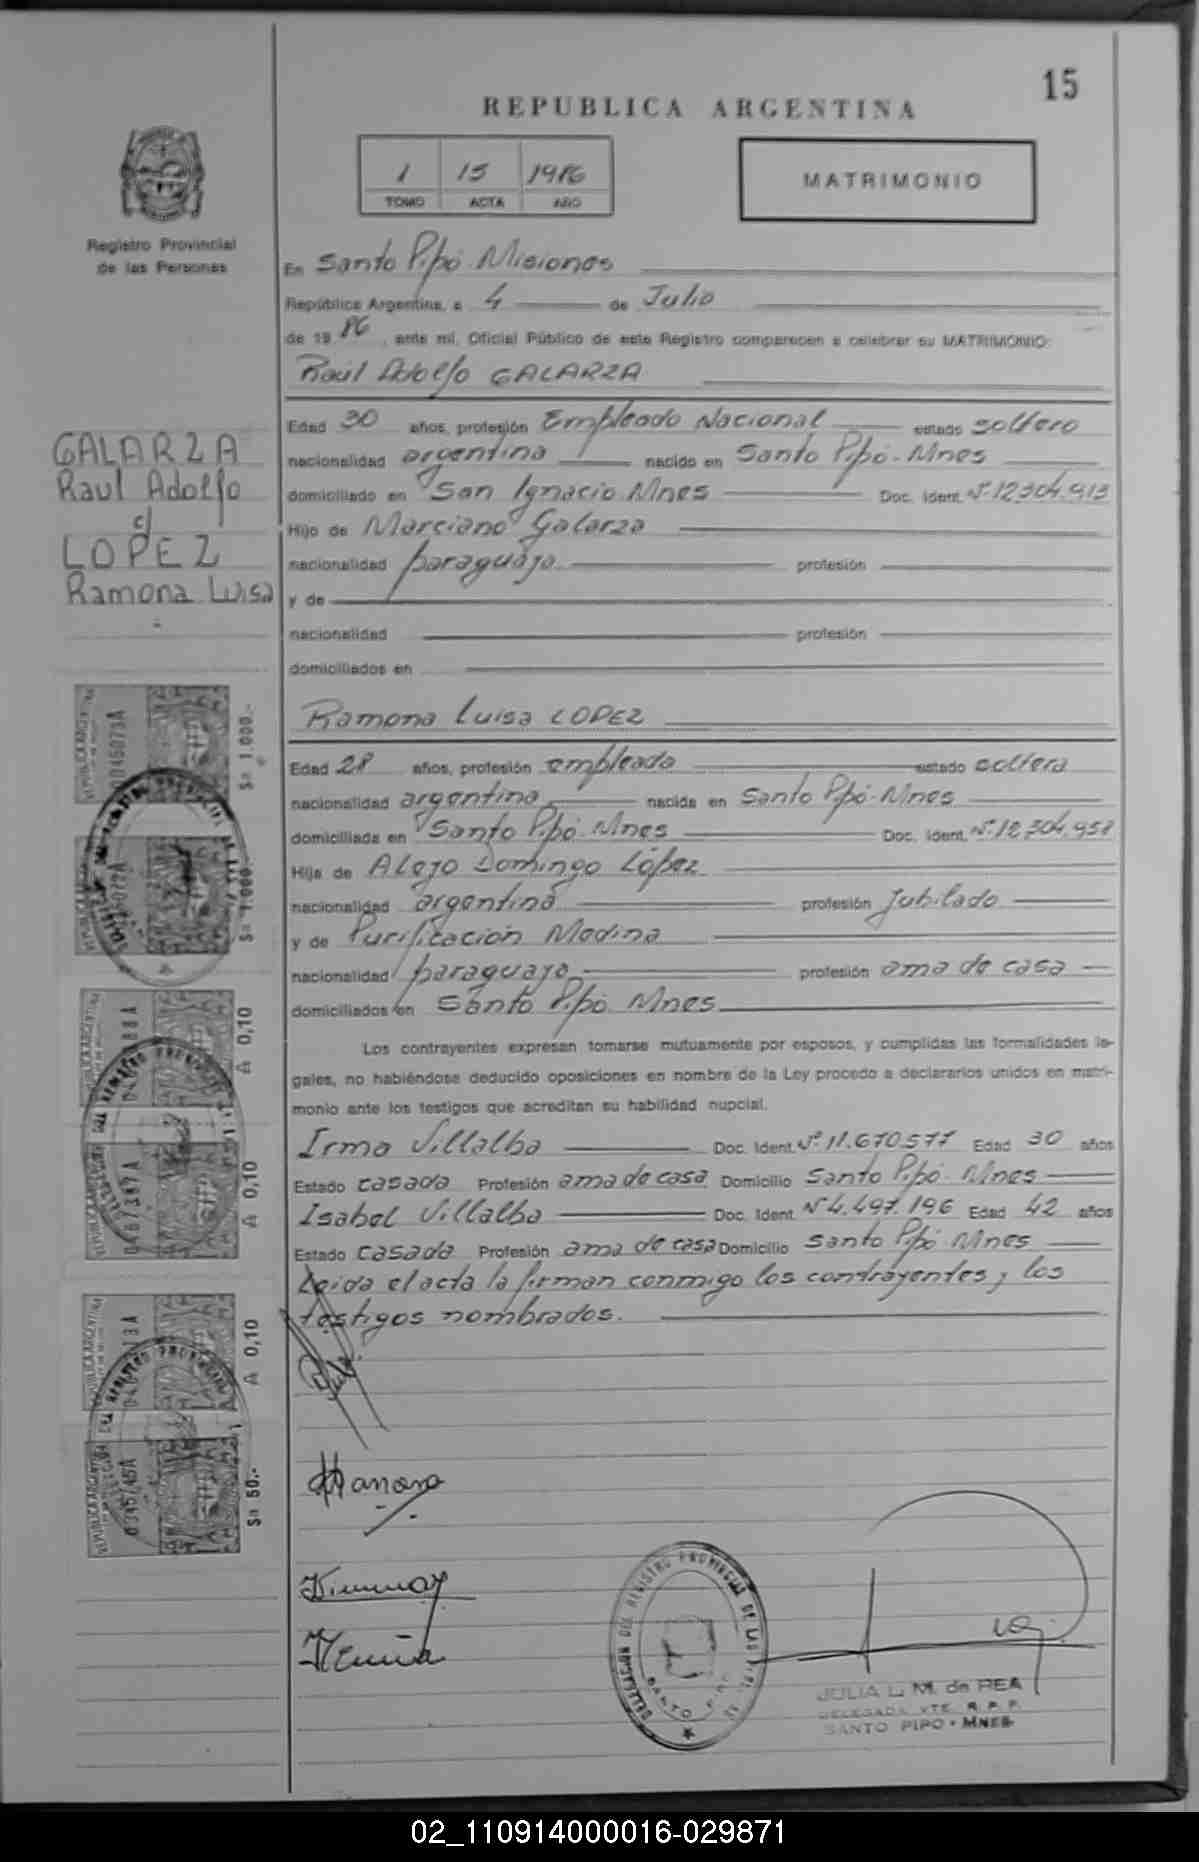 15
REPUBLICA ARGENTINA
1 15 1986
TOMO ACTA AÑO
MATRIMONIO
Registro Provincial
de las Personas
En Santo Pipó Misiones
República Argentina, a 4 de Julio
de 19 86, ante mí, Oficial Público de este Registro comparecen a celebrar su MATRIMONIO:
Raúl Adolfo GALARZA
Edad 30 años, profesión Empleado Nacional estado soltero
nacionalidad argentina nacido en Santo Pipó-Mnes
domiciliado en San Ignacio Mnes Doc. Ident. Nº 12304.913
Hijo de Marciano Galarza
nacionalidad paraguaja profesión
y de
nacionalidad profesión
domiciliados en
GALARZA
Raul Adolfo
c/
LOPEZ
Ramona Luisa
Ramona Luisa LOPEZ
Edad 28 años, profesión empleada estado soltera
nacionalidad argentina nacida en Santo Pipó-Mnes
domiciliada en Santo Pipó Mnes Doc. Ident. Nº 12304.958
Hija de Alejo Domingo López
nacionalidad argentina profesión Jubilado
y de Purificación Medina
nacionalidad paraguaja profesión ama de casa
domiciliados en Santo Pipó Mnes
Los contrayentes expresan tomarse mutuamente por esposos, y cumplidas las formalidades le-
gales, no habiéndose deducido oposiciones en nombre de la Ley procedo a declararlos unidos en matri-
monio ante los testigos que acreditan su habilidad nupcial.
Irma Villalba Doc. Ident. Nº 11.670.577 Edad 30 años
Estado casada Profesión ama de casa Domicilio Santo Pipó Mnes
Isabel Villalba Doc. Ident. Nº 4.497.196 Edad 42 años
Estado casada Profesión ama de casa Domicilio Santo Pipó Mnes
Leida el acta la firman conmigo los contrayentes y los
testigos nombrados.
$a 1.000.-
$a 1.000.-
A 0,10
A 0,10
A 0,10
$a 50.-
DELEGACION DEL REGISTRO PROVINCIAL DE LAS
SANTO PIPO
JULIA L. M. de REA
DELEGADA VTE. R. P. P.
SANTO PIPO - MNES
02_110914000016-029871